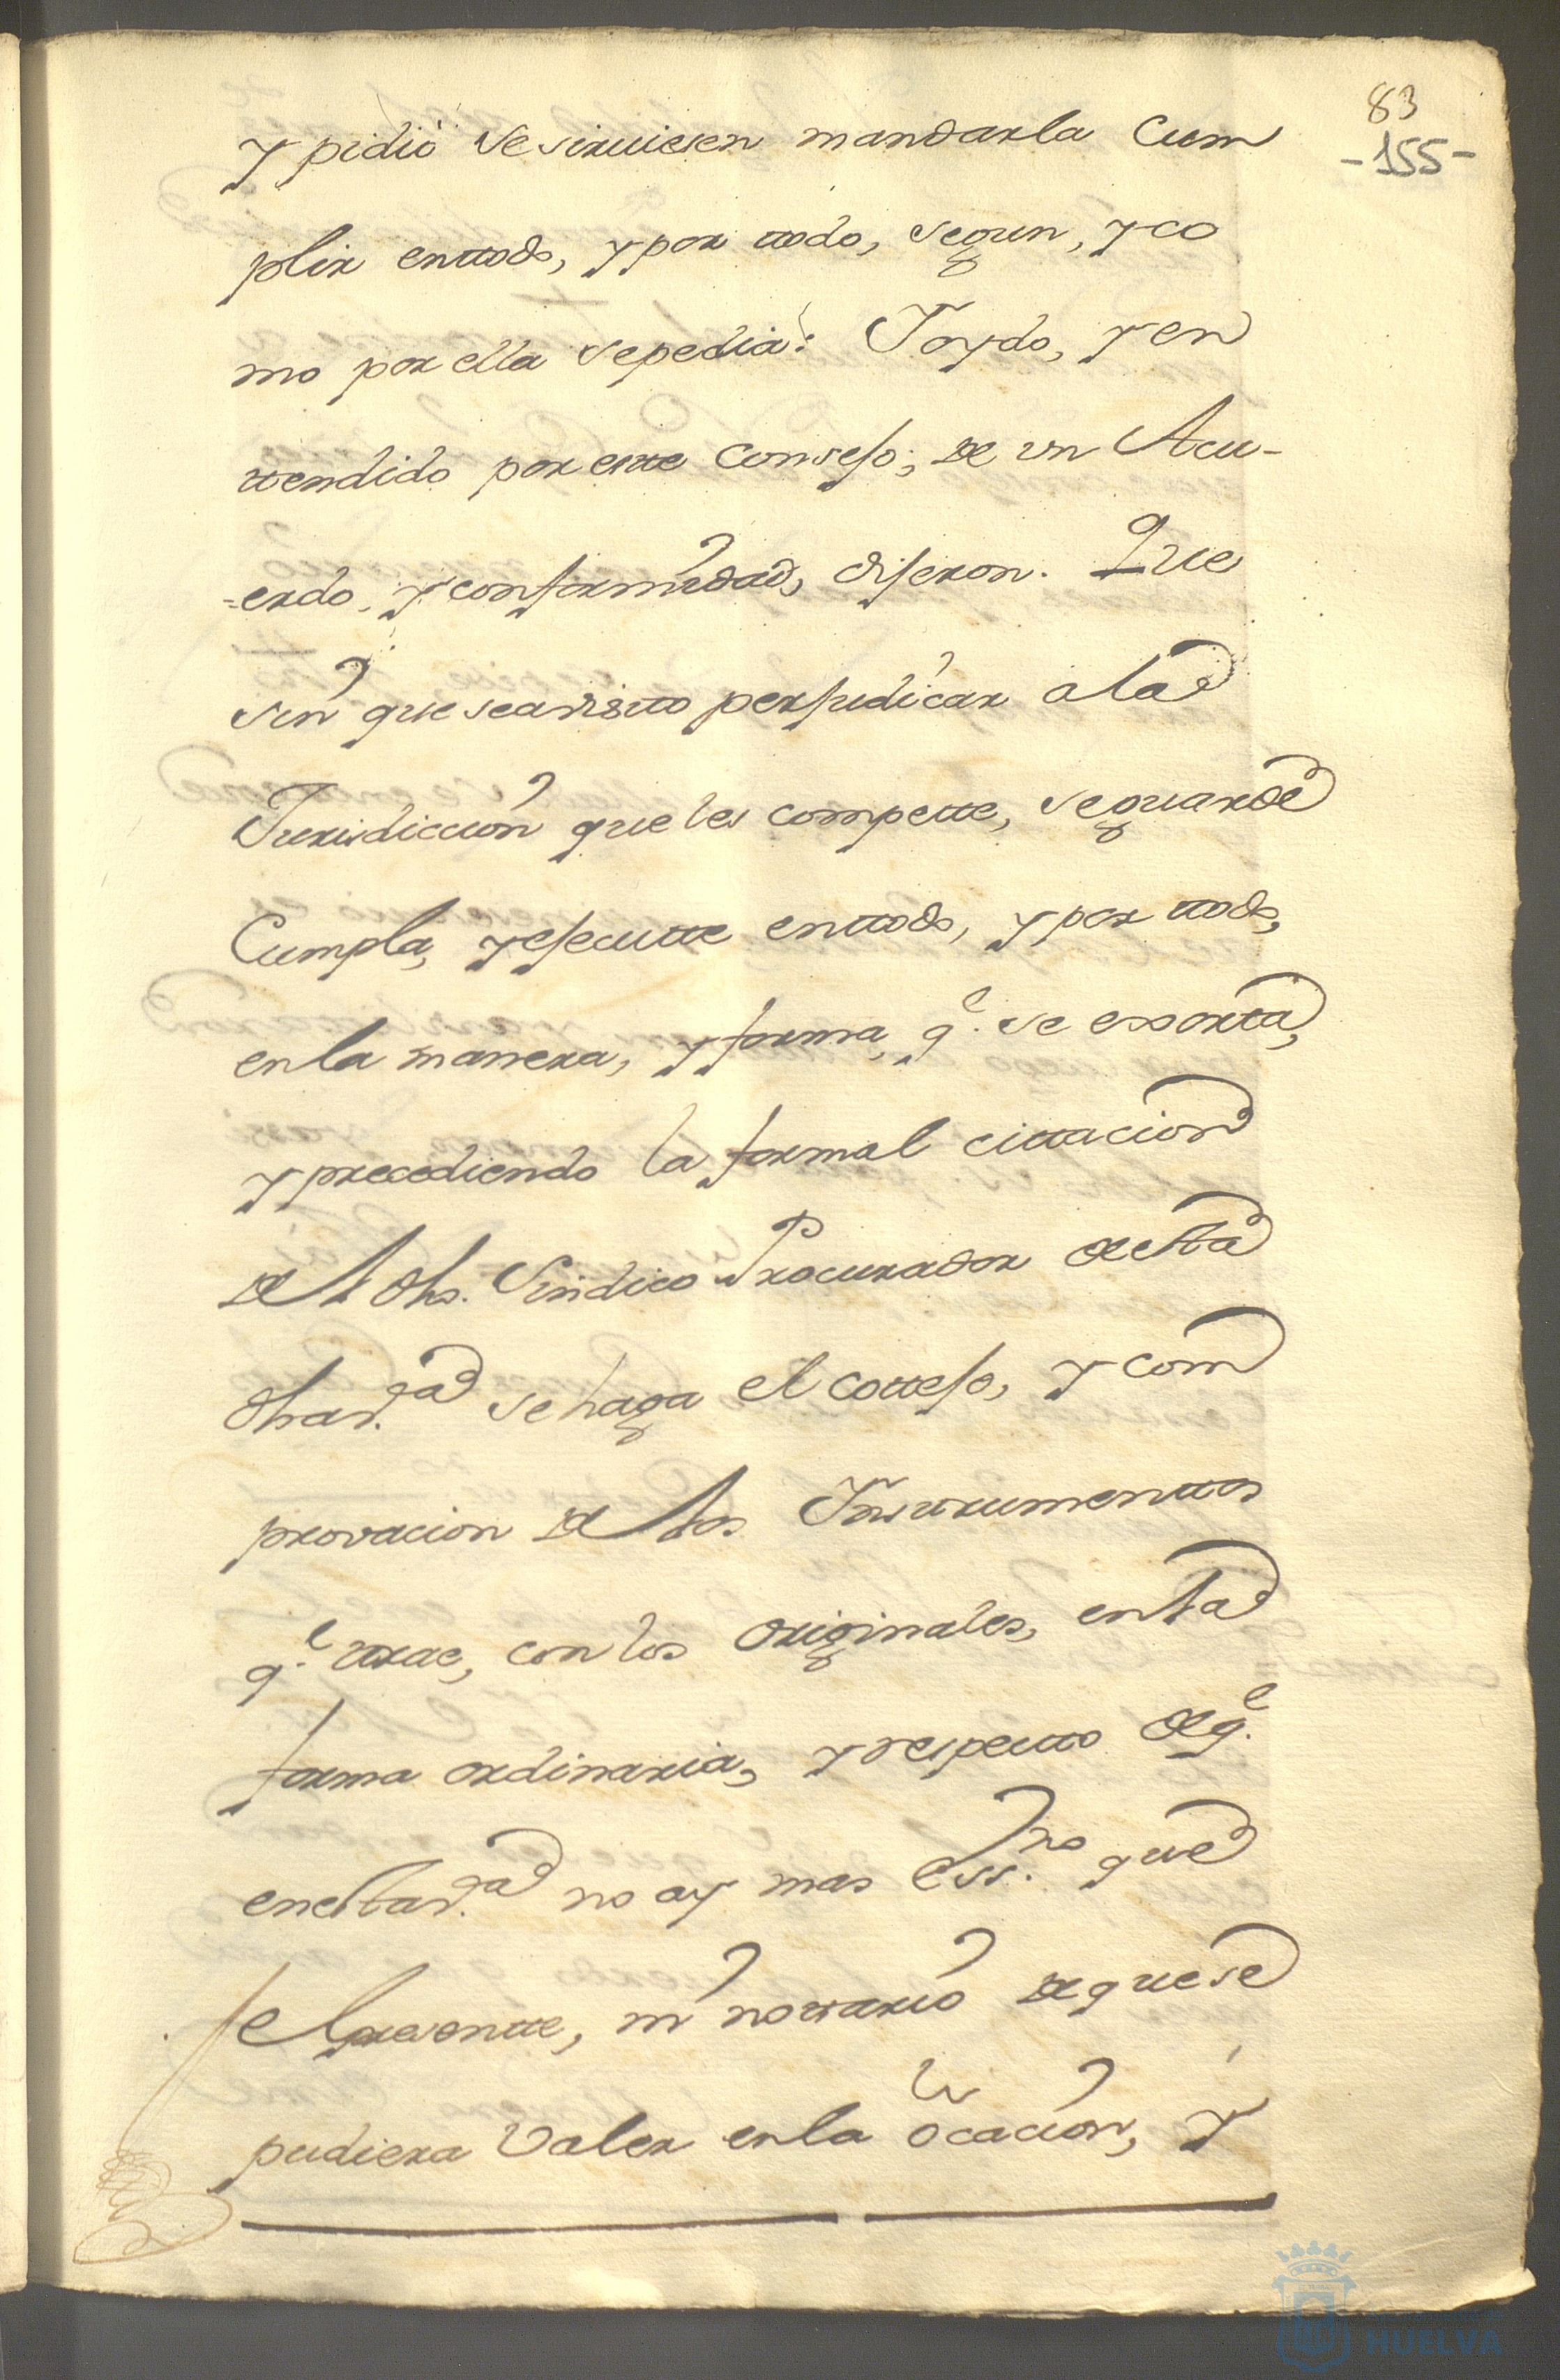 83
-155-
y pidio se siruiesen mandarla Cum
plir enttodo, y por ttodo, segun, y co
mo por ella se pedia: Y oydo, y en
ttendido por estte Consejo; de vn Acu-
=erdo, y conformidad, dijeron. Que
sin que sea visto perjudicar a la
Jurisdiccion que les compette, se guarde
Cumpla, y ejecutte enttodo, y por ttodo,
en la manera, y forma, q.e se exortta,
y precediendo la formal cittacion
del dho. Sindico Procurador de esta
dha v.a se haga el cottejo, y com
provacion de los Insttrumenttos
q.e ttrae, con los originales, en la
forma ordinaria, y respectto de q.e
en esta v.a no ay mas Ess.no que
el presentte, ni nottario de que se
pudiera valer en la ocacion, y
HUELVA